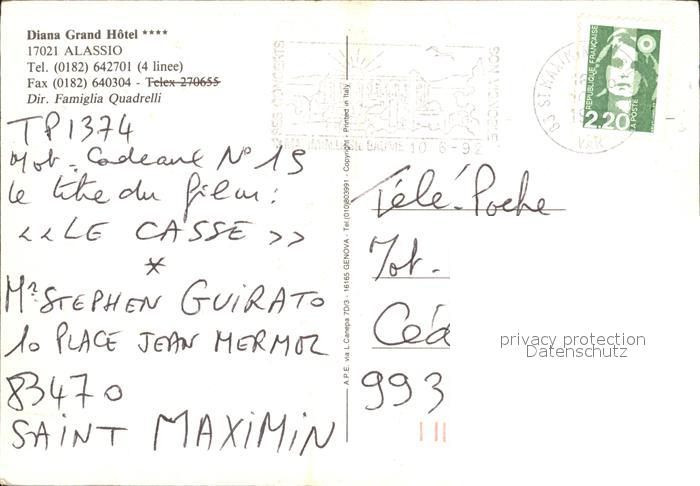 Diana Grand Hôtel ****
17021 ALASSIO
Tel. (0182) 642701 (4 linee)
Fax (0182) 640304 - Telex 270655
Dir. Famiglia Quadrelli
TP1374
Mot-Cadeaux N° 19
Le titre du film:
<< LE CASSE >>
*
Mr STEPHEN GUIRATO
10 PLACE JEAN MERMOZ
83470
SAINT MAXIMIN
A.P.E. via L.Canepa 7D/3 - 16165 GENOVA - Tel.(010)803991 - Copyright - Printed in Italy
SES CONCERTS
10-6-92
83 ST MAXIMIN
VAR
REPUBLIQUE FRANÇAISE
2,20
LA POSTE
Télé-Poche
Mot-
Céd
993
privacy protection
Datenschutz